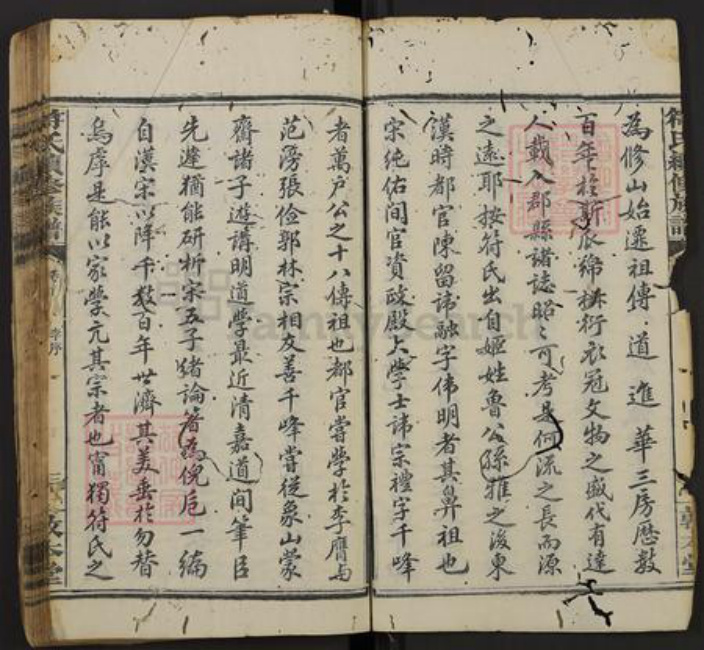 為修山始遷祖傳道進華三房歷數
百年於斯瓜綿椒衍衣冠文物之盛代有達
人載入郡縣諸誌昭〻可考是何流之長而源
之遠耶按符氏出自姬姓魯公孫雅之後東
漢時都官陳留諱融字偉明者其鼻祖也
宋純佑間官資政殿大學士諱宗禮字千峰
者萬戶公之十八傳祖也都官嘗學於李膺與
范滂張儉郭林宗相友善千峰嘗從象山蒙
齋諸子遊講明道學最近清嘉道間筆臣
先達猶能研析宋五子緒論著為倪巵一編
自漢宋以降千數百年世濟其美垂於勿替
烏虖是能以家學亢其宗者也甯獨符氏之
符氏續修族譜
敦本堂